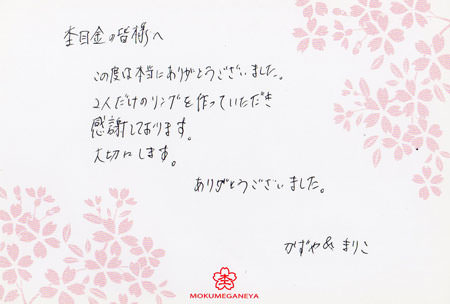 杢目金の皆様へ
この度は本当にありがとうございました。
2人だけのリングを作っていただき
感謝しております。
大切にします。
ありがとうございました。
かずや & まりこ
杢
MOKUMEGANEYA